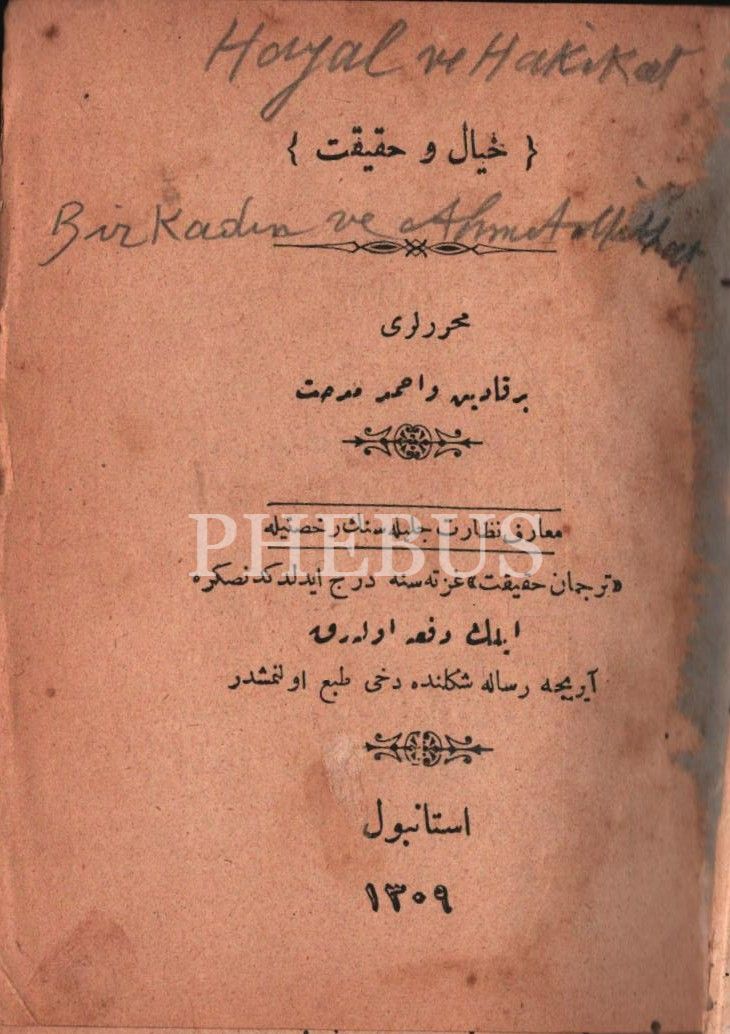 Hayal ve Hakikat
{ خيال و حقيقت }
Bir Kadın ve Ahmet Mithat
محررلری
برقادین واحمد مدحت
معارف نظارت جلیله سنك رخصتیله
PHEBUS
«ترجمان حقیقت» غزته سنه درج ایدلدکدنصکره
ایلك دفعه اوله رق
آیریجه رساله شکلنده دخی طبع اولنمشدر
استانبول
١٣٠٩